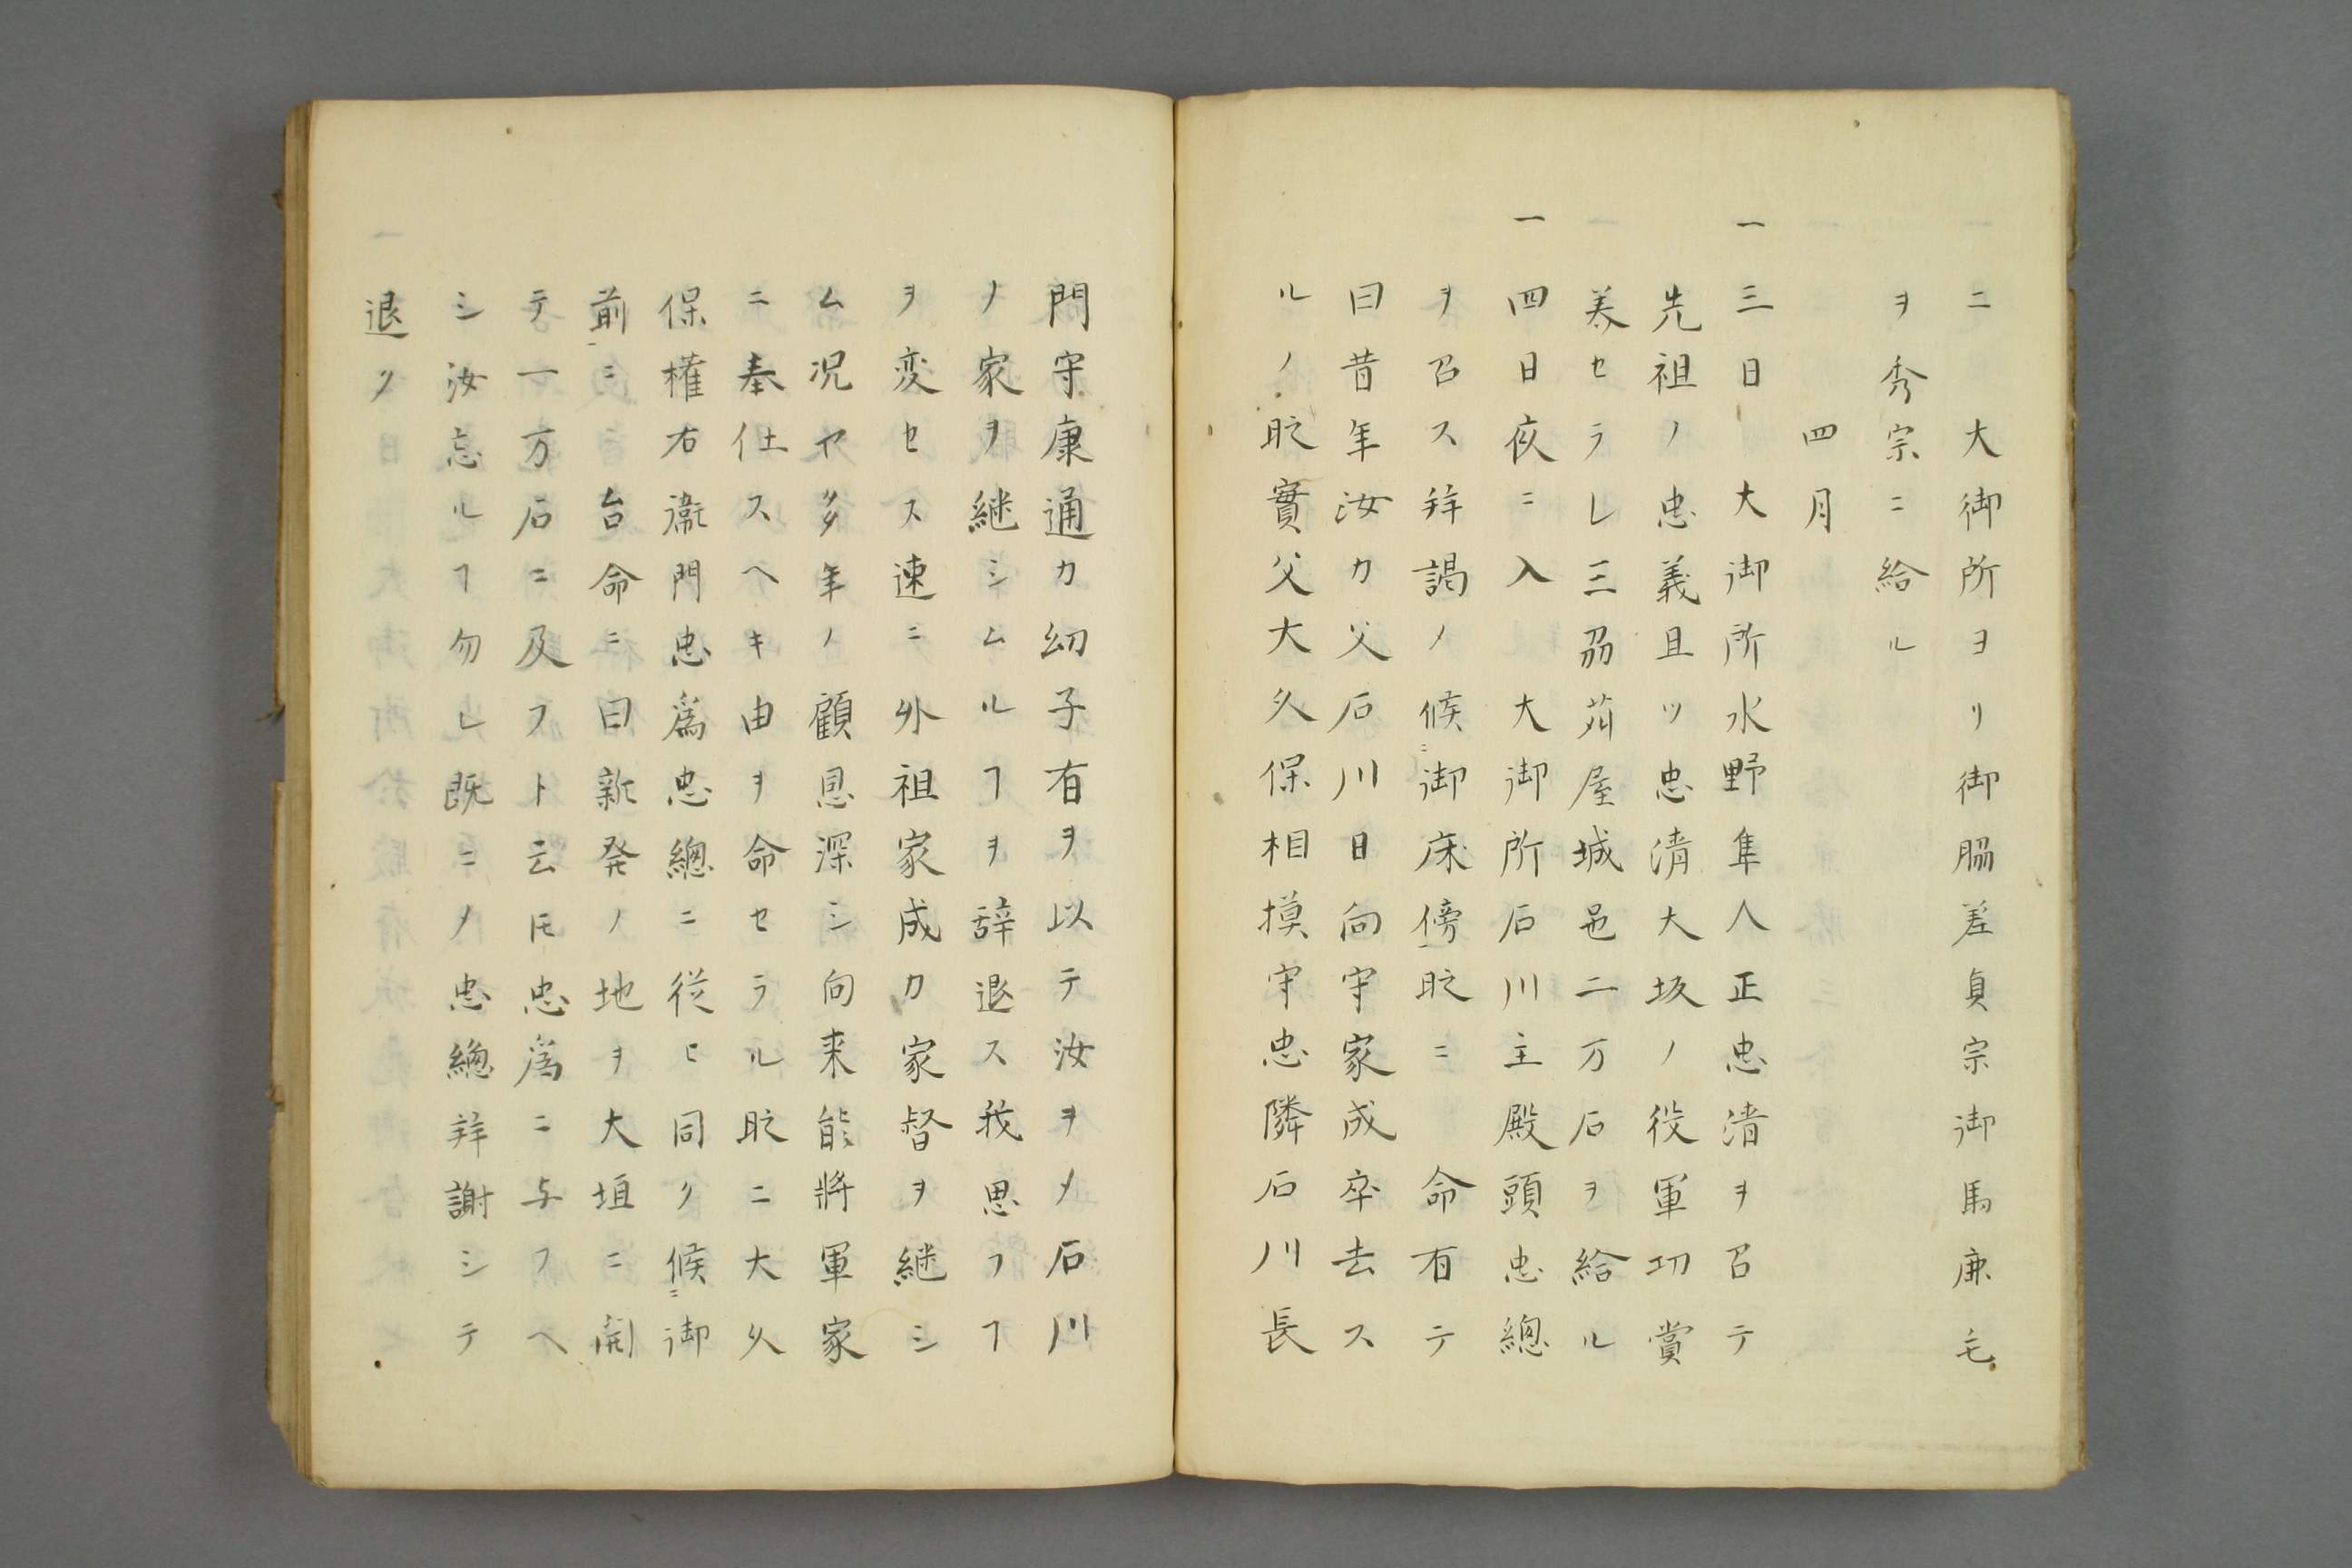 ニ　大御所ヨリ御脇差貞宗御馬鹿毛
ヲ秀宗ニ給ル
四月
一三日　大御所水野隼人正忠清ヲ召テ
先祖ノ忠義且ツ忠清大坂ノ役軍功賞
美セラレ三刕苅屋城邑二万石ヲ給ル
一四日夜ニ入　大御所石川主殿頭忠總
ヲ召ス拜謁ノ候ニ御床傍昵ニ　命有テ
曰昔年汝カ父石川日向守家成卒去ス
ルノ昵實父大久保相摸守忠隣石川長
門守康通カ幼子有ヲ以テ汝ヲメ石川
ノ家ヲ継シムルヿヲ辞退ス我思フヿ
ヲ変セス速ニ外祖家成カ家督ヲ継シ
ム况ヤ多年ノ顧恩深シ向来能將軍家
ニ奉仕スヘキ由ヲ命セラル昵ニ大久
保權右衞門忠爲忠總ニ従ヒ同ク候ニ御
前ニ　台命ニ曰新発ノ地ヲ大垣ニ開
テ一万石ニ及フト云𪜈忠爲ニ与フヘ
シ汝忘ルヿ勿レ既ニノ忠總拜謝シテ
退ク